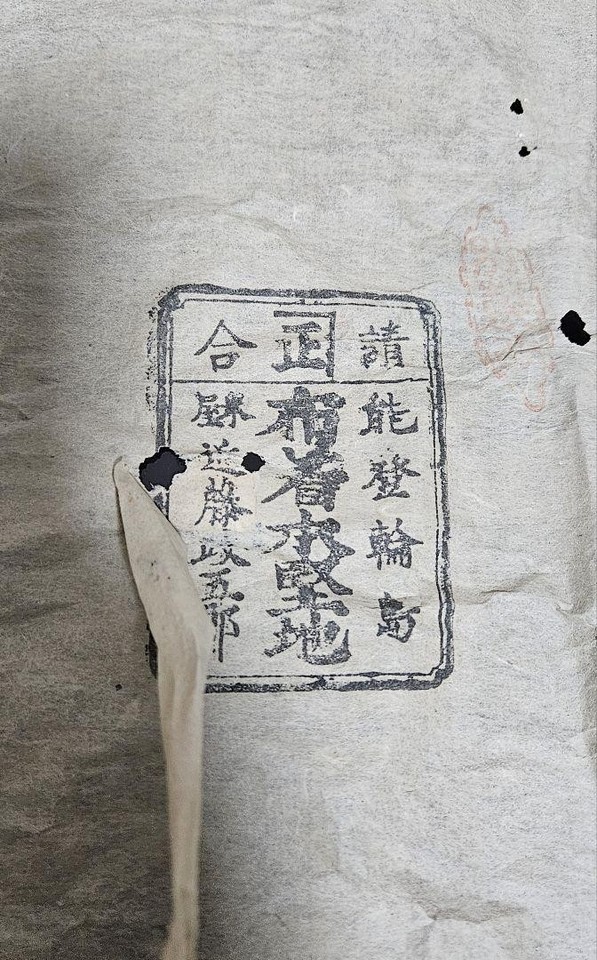 請正合
能登輪島
布着本堅地
近藤政五郎